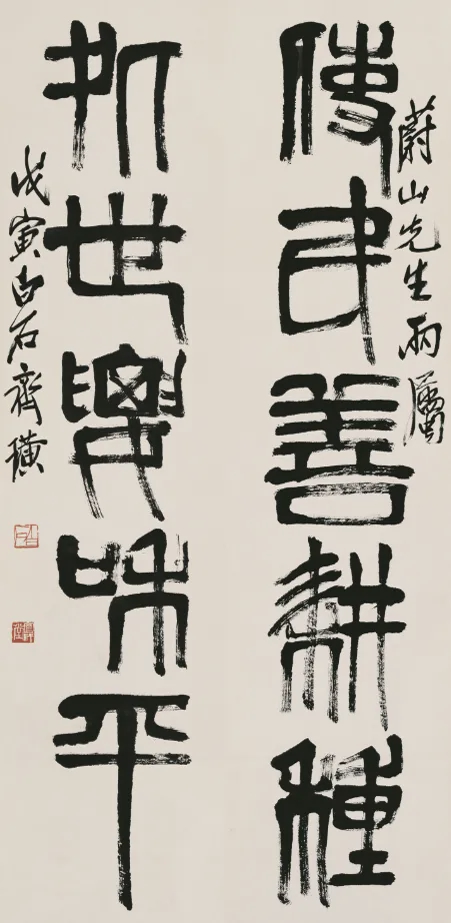 蔚山先生兩屬
使民善耕種
世要和平
戊寅白石齊璜